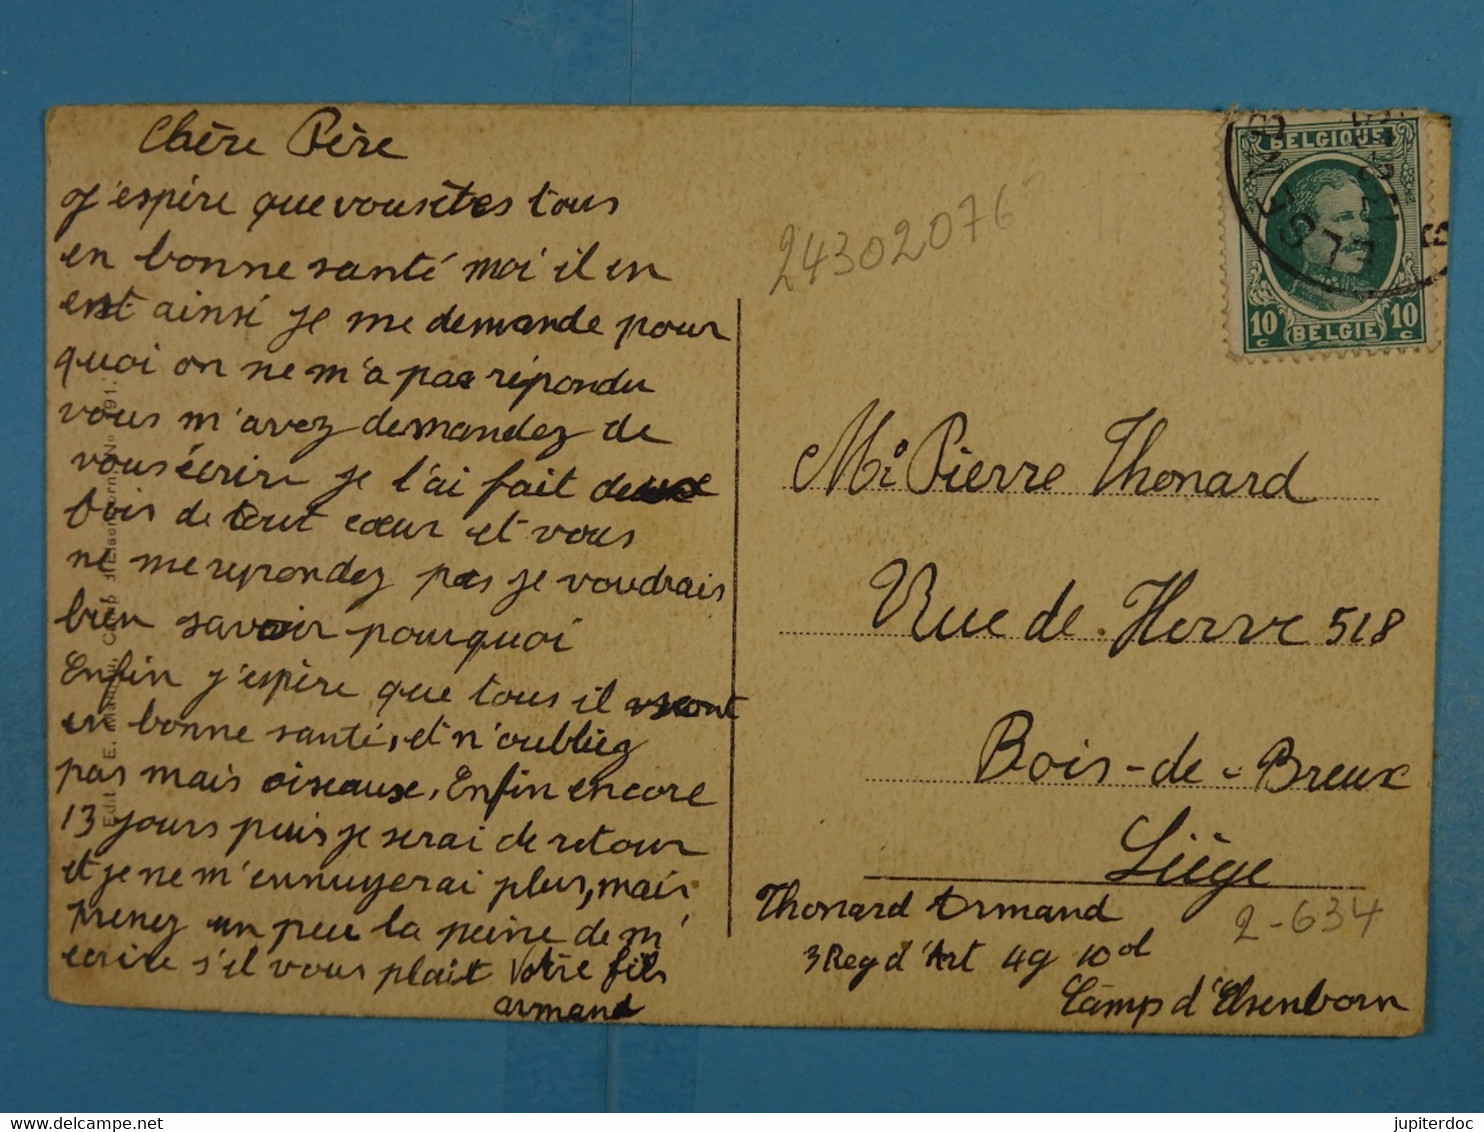 Chère Père
J'espère que vous êtes tous
en bonne santé moi il en
est ainsi je me demande pour
quoi on ne m'a pas répondu
vous m'avez demandez de
vous écrire je l'ai fait deux
fois de tout cœur et vous
ne me repondez pas je voudrais
bien savoir pourquoi
Enfin j'espère que tous il sont
en bonne santé, et n'oubliez
pas mais oiseaux. Enfin encore
13 jours puis je serai de retour
et je ne m'ennuyerai plus, mais
prenez un peu la peine de m'
écrire s'il vous plait Votre fils
armand
24302076
BELGIQUE
10 c BELGIË 10 c
Mr Pierre Thonard
Rue de Herve 518
Bois-de-Breux
Liège
2-634
Thonard Armand
3 Reg d'Art 4g 10
Camp d'Elsenborn
delcampe.net
jupiterdoc